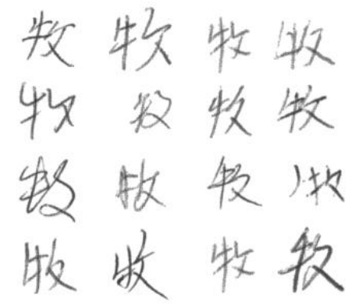 牧 牧 牧 牧
牧 牧 牧 牧
牧 牧 牧 牧
牧 牧 牧 牧